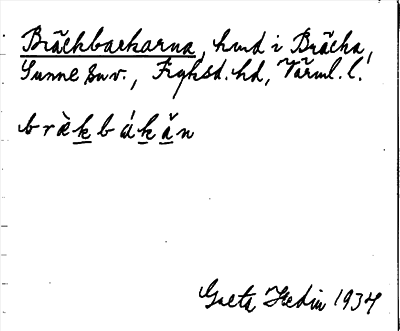 Bräckbackarna, hmd i Bräcka,
Sunne sn., Fryksd. hd, Värml. l.
brὲkbákăn
Greta Hedin 1934